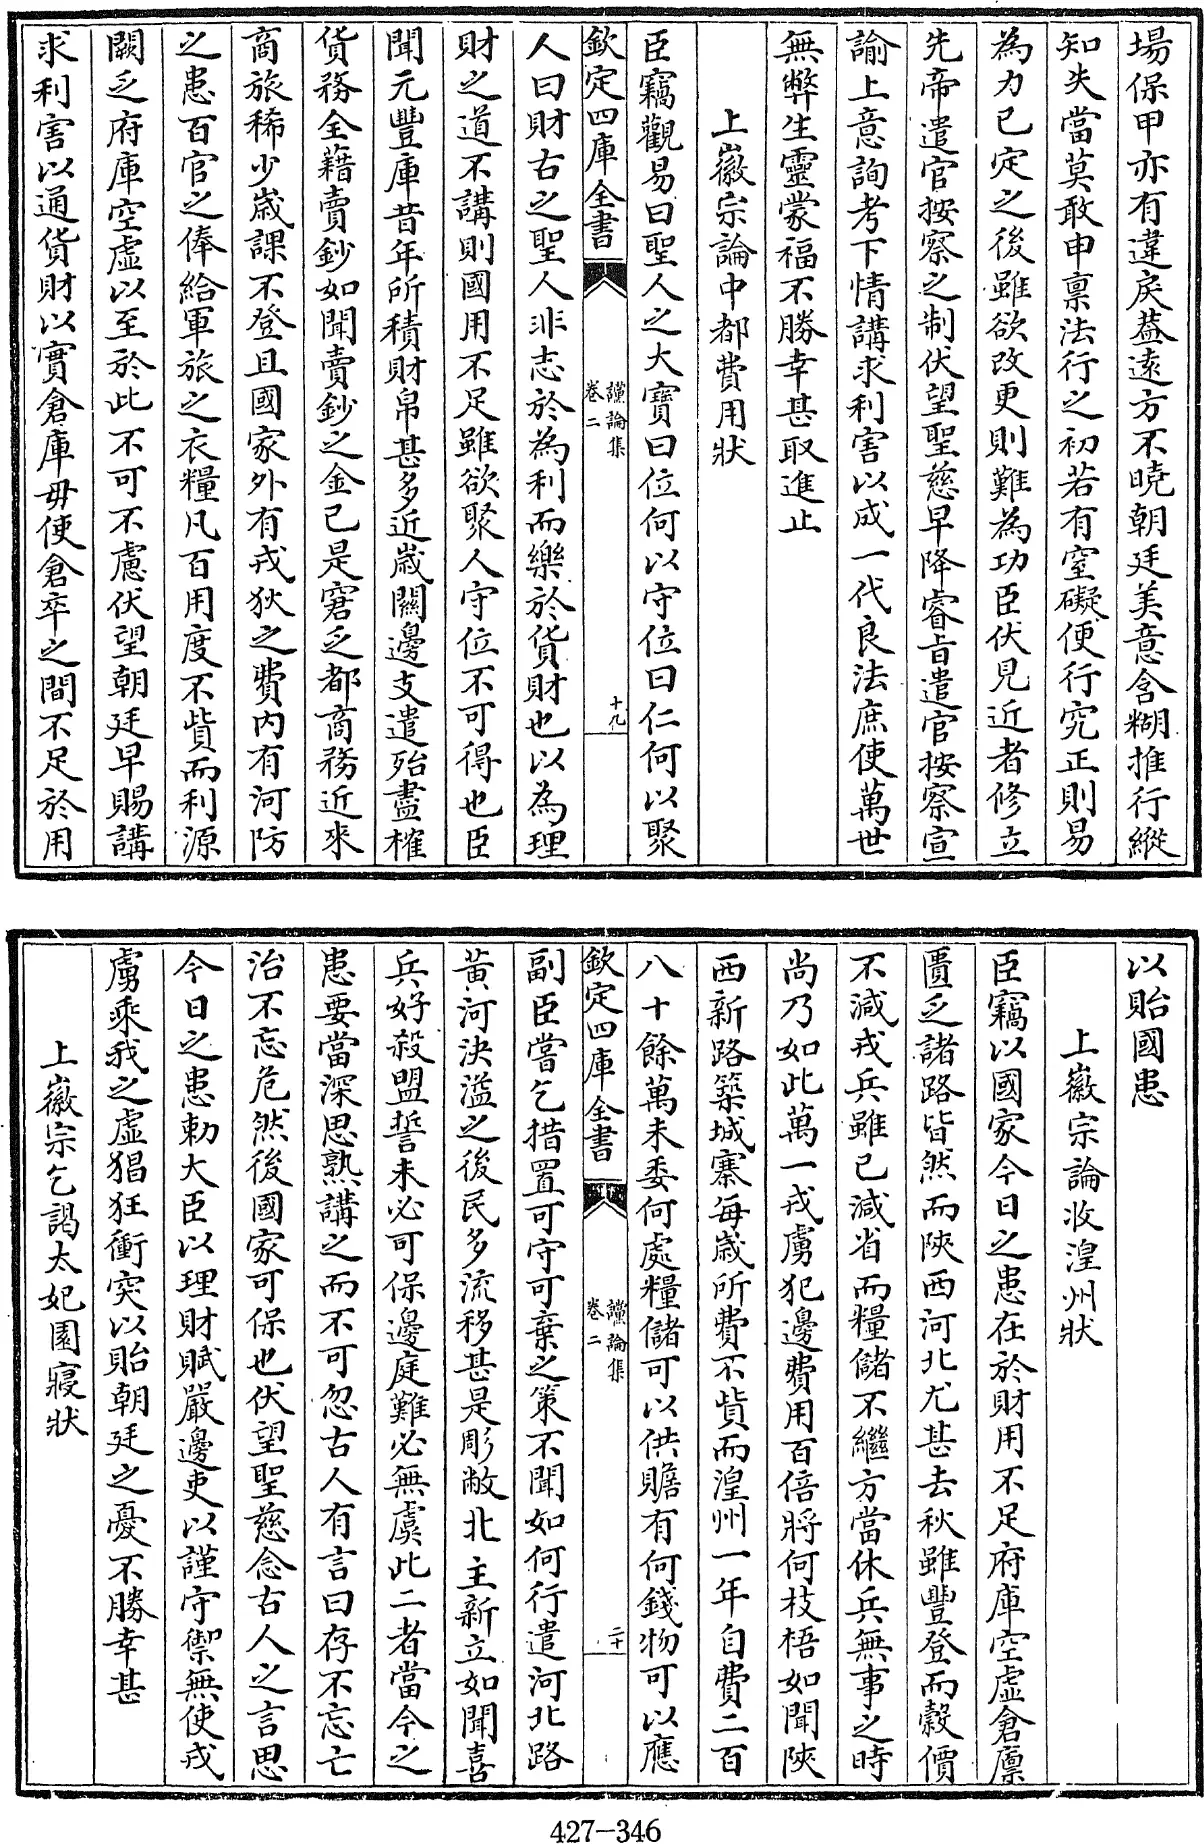 場保甲亦有違戾葢遠方不曉朝廷美意含糊推行縱
知失當莫敢申禀法行之初若有窒礙便行究正則易
為力已定之後雖欲改更則難為功臣伏見近者修立
先帝遣官按察之制伏望聖慈早降睿旨遣官按察宣
諭上意詢考下情講求利害以成一代良法庶使萬世
無弊生靈蒙福不勝幸甚取進止
上徽宗論中都費用狀
臣竊觀易曰聖人之大寶曰位何以守位曰仁何以聚
欽定四庫全書
讜論集
卷二
十九
人曰財古之聖人非志於為利而樂於貨財也以為理
財之道不講則國用不足雖欲聚人守位不可得也臣
聞元豐庫昔年所積財帛甚多近歲闗邊支遣殆盡榷
貨務全藉賣鈔如聞賣鈔之金已是窘乏都商務近來
商旅稀少歲課不登且國家外有戎狄之費内有河防
之患百官之俸給軍旅之衣糧凡百用度不貲而利源
闕乏府庫空虚以至於此不可不慮伏望朝廷早賜講
求利害以通貨財以實倉庫毋使倉卒之間不足於用
以貽國患
上徽宗論收湟州狀
臣竊以國家今日之患在於財用不足府庫空虚倉廪
匱乏諸路皆然而陜西河北尤甚去秋雖豐登而糓價
不減戎兵雖已減省而糧儲不繼方當休兵無事之時
尚乃如此萬一戎虜犯邊費用百倍將何枝梧如聞陜
西新路築城寨每歲所費不貲而湟州一年自費二百
八十餘萬未委何處糧儲可以供贍有何錢物可以應
欽定四庫全書
讜論集
卷二
二十
副臣嘗乞措置可守可棄之策不聞如何行遣河北路
黄河決溢之後民多流移甚是彫敝北主新立如聞喜
兵好殺盟誓未必可保邊庭難必無虞此二者當今之
患要當深思熟講之而不可忽古人有言曰存不忘亡
治不忘危然後國家可保也伏望聖慈念古人之言思
今日之患勅大臣以理財賦嚴邊吏以謹守禦無使戎
虜乘我之虚猖狂衝突以貽朝廷之憂不勝幸甚
上徽宗乞謁太妃園寢狀
427-346